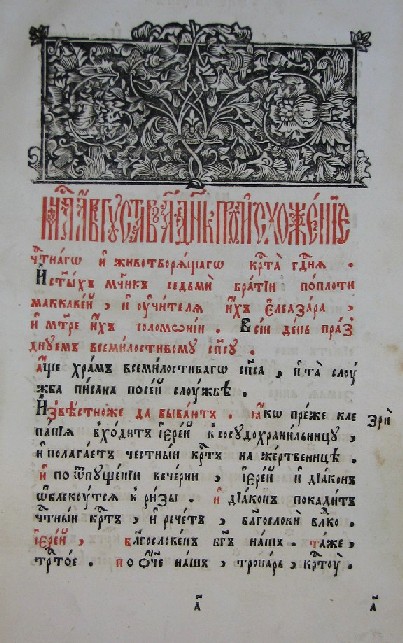 мц҃а а҆́вгꙋста в҃ а҃ де́нь, происхожде́нїе
чтⷭ҇на́гѡ и҆ животворѧ́щагѡ крⷭ҇та̀ гдⷭ҇нѧ .
И҆ ст҃ы́хъ мч҃нкъ седьмѝ бра́тїи по пло́ти
маккаве́й , и҆ ᲂу҆чи́телѧ и҆́хъ є҆леаза́ра ,
и҆ мт҃ре и҆́хъ соломоні́и . Въ се́й де́нь пра́з
днꙋемъ всемлⷭ҇тивомꙋ сп҃сꙋ
а҆́ще хра́мъ всемлⷭ҇тиваго сп҃са , и҆ та̀ слꙋ́
жба пи́сана по се́й слꙋ́жбѣ .
И҆звѣ́стно же да быва́етъ . ꙗ҆́кѡ пре́же кле
зрѝ
па́нїѧ вхо́дитъ і҆ере́й к сосꙋдохрани́льницꙋ ,
и҆ полага́етъ честны́й крⷭ҇тъ на же́ртвеницѣ
И҆ по ѿпꙋще́нїи вече́рни , і҆ере́й и҆ дїа́конъ
ѡ҆блеку́тсѧ в ри́зы . и҆ дїа́конъ покади́тъ
чтⷭ҇ны́й крⷭ҇тъ , и҆ рече́тъ , блгⷭ҇ловѝ влⷣко .
і҆ере́й , Блгⷭ҇ве́нъ бг҃ъ на́шъ . та́же
трⷭ҇то́е . по ѻ҆́ч҃е на́шъ , тропа́рь , крⷭ҇тꙋ̀ ,
а҃ а҃